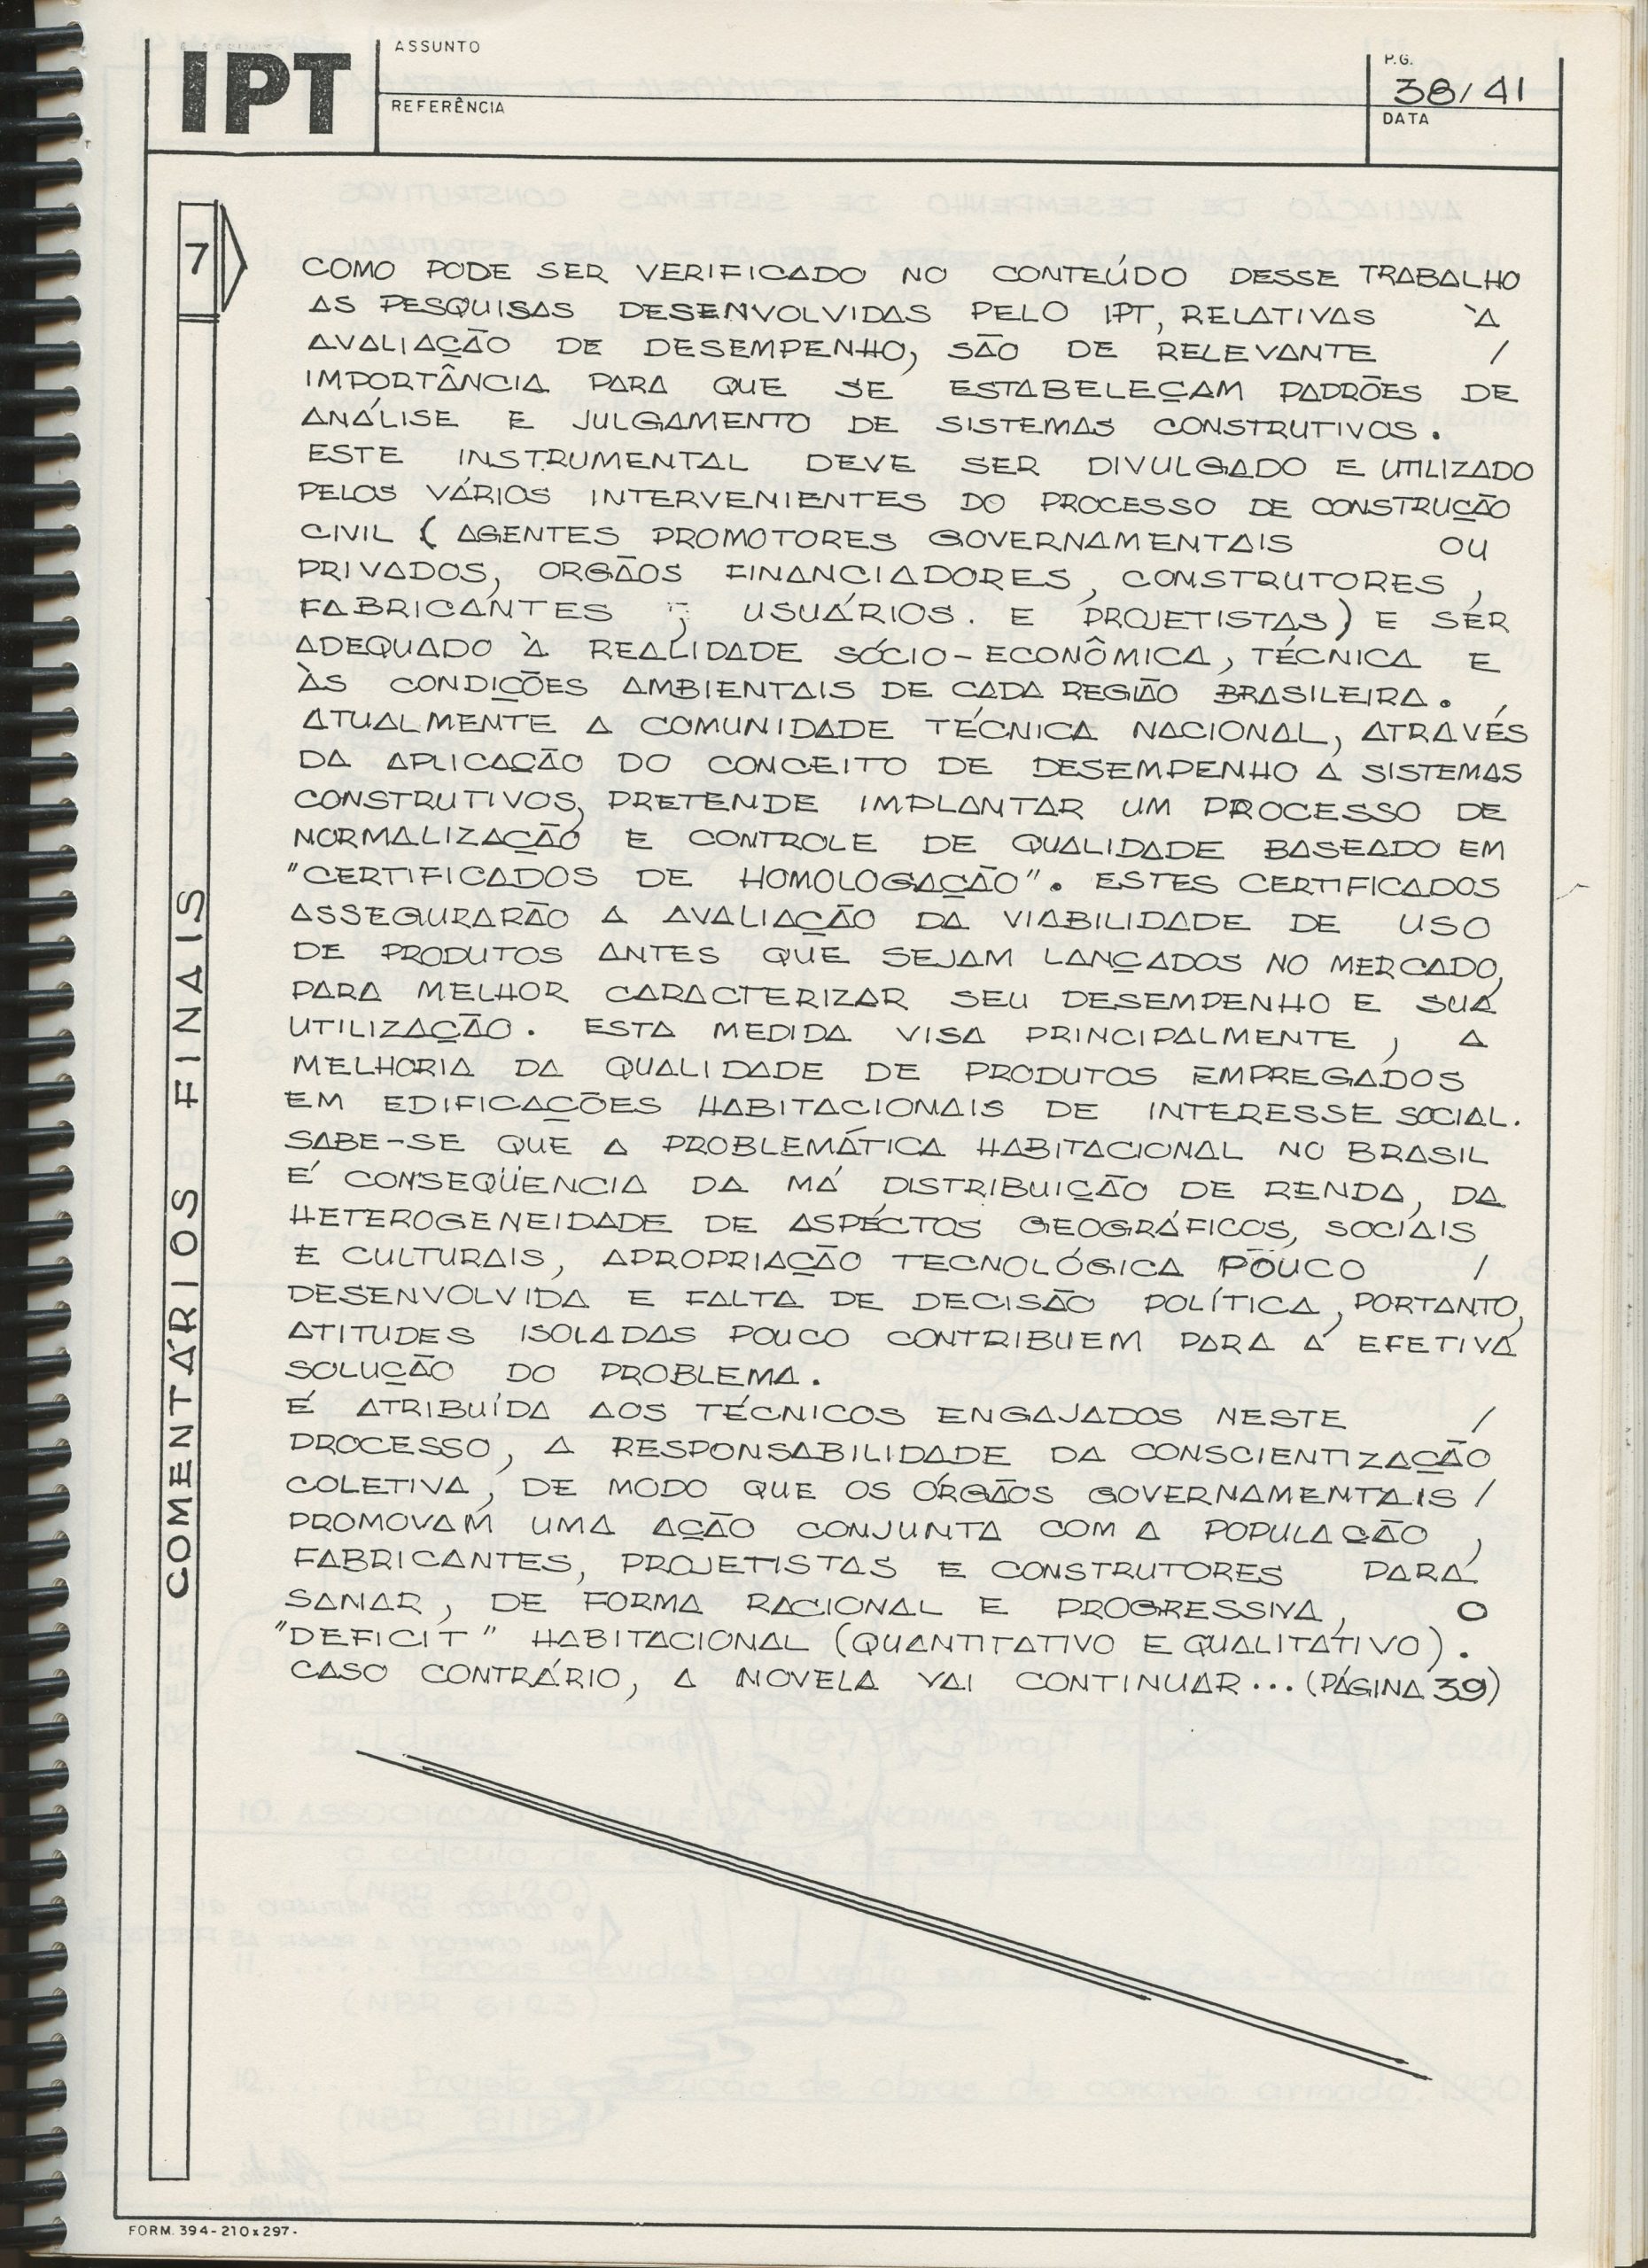 IPT
ASSUNTO
REFERÊNCIA
P.G.
38/41
DATA
7
COMENTÁRIOS FINAIS
COMO PODE SER VERIFICADO NO CONTEÚDO DESSE TRABALHO
AS PESQUISAS DESENVOLVIDAS PELO IPT, RELATIVAS À
AVALIAÇÃO DE DESEMPENHO, SÃO DE RELEVANTE /
IMPORTÂNCIA PARA QUE SE ESTABELEÇAM PADRÕES DE
ANÁLISE E JULGAMENTO DE SISTEMAS CONSTRUTIVOS.
ESTE INSTRUMENTAL DEVE SER DIVULGADO E UTILIZADO
PELOS VÁRIOS INTERVENIENTES DO PROCESSO DE CONSTRUÇÃO
CIVIL (AGENTES PROMOTORES GOVERNAMENTAIS OU
PRIVADOS, ORGÃOS FINANCIADORES, CONSTRUTORES,
FABRICANTES , USUÁRIOS. E PROJETISTAS) E SER
ADEQUADO À REALIDADE SÓCIO-ECONÔMICA, TÉCNICA E
ÀS CONDIÇÕES AMBIENTAIS DE CADA REGIÃO BRASILEIRA.
ATUALMENTE A COMUNIDADE TÉCNICA NACIONAL, ATRAVÉS
DA APLICAÇÃO DO CONCEITO DE DESEMPENHO A SISTEMAS
CONSTRUTIVOS, PRETENDE IMPLANTAR UM PROCESSO DE
NORMALIZAÇÃO E CONTROLE DE QUALIDADE BASEADO EM
"CERTIFICADOS DE HOMOLOGAÇÃO". ESTES CERTIFICADOS
ASSEGURARÃO A AVALIAÇÃO DA VIABILIDADE DE USO
DE PRODUTOS ANTES QUE SEJAM LANÇADOS NO MERCADO,
PARA MELHOR CARACTERIZAR SEU DESEMPENHO E SUA
UTILIZAÇÃO. ESTA MEDIDA VISA PRINCIPALMENTE, A
MELHORIA DA QUALIDADE DE PRODUTOS EMPREGADOS
EM EDIFICAÇÕES HABITACIONAIS DE INTERESSE SOCIAL.
SABE-SE QUE A PROBLEMÁTICA HABITACIONAL NO BRASIL
É CONSEQÜENCIA DA MÁ DISTRIBUIÇÃO DE RENDA, DA
HETEROGENEIDADE DE ASPÉCTOS GEOGRÁFICOS, SOCIAIS
E CULTURAIS, APROPRIAÇÃO TECNOLÓGICA POUCO /
DESENVOLVIDA E FALTA DE DECISÃO POLÍTICA, PORTANTO,
ATITUDES ISOLADAS POUCO CONTRIBUEM PARA A EFETIVA
SOLUÇÃO DO PROBLEMA.
É ATRIBUÍDA AOS TÉCNICOS ENGAJADOS NESTE /
PROCESSO, A RESPONSABILIDADE DA CONSCIENTIZAÇÃO
COLETIVA, DE MODO QUE OS ÓRGÃOS GOVERNAMENTAIS /
PROMOVAM UMA AÇÃO CONJUNTA COM A POPULAÇÃO,
FABRICANTES, PROJETISTAS E CONSTRUTORES PARA
SANAR, DE FORMA RACIONAL E PROGRESSIVA, O
"DEFICIT" HABITACIONAL (QUANTITATIVO E QUALITATIVO).
CASO CONTRÁRIO, A NOVELA VAI CONTINUAR... (PÁGINA 39)
FORM. 394-210x297-